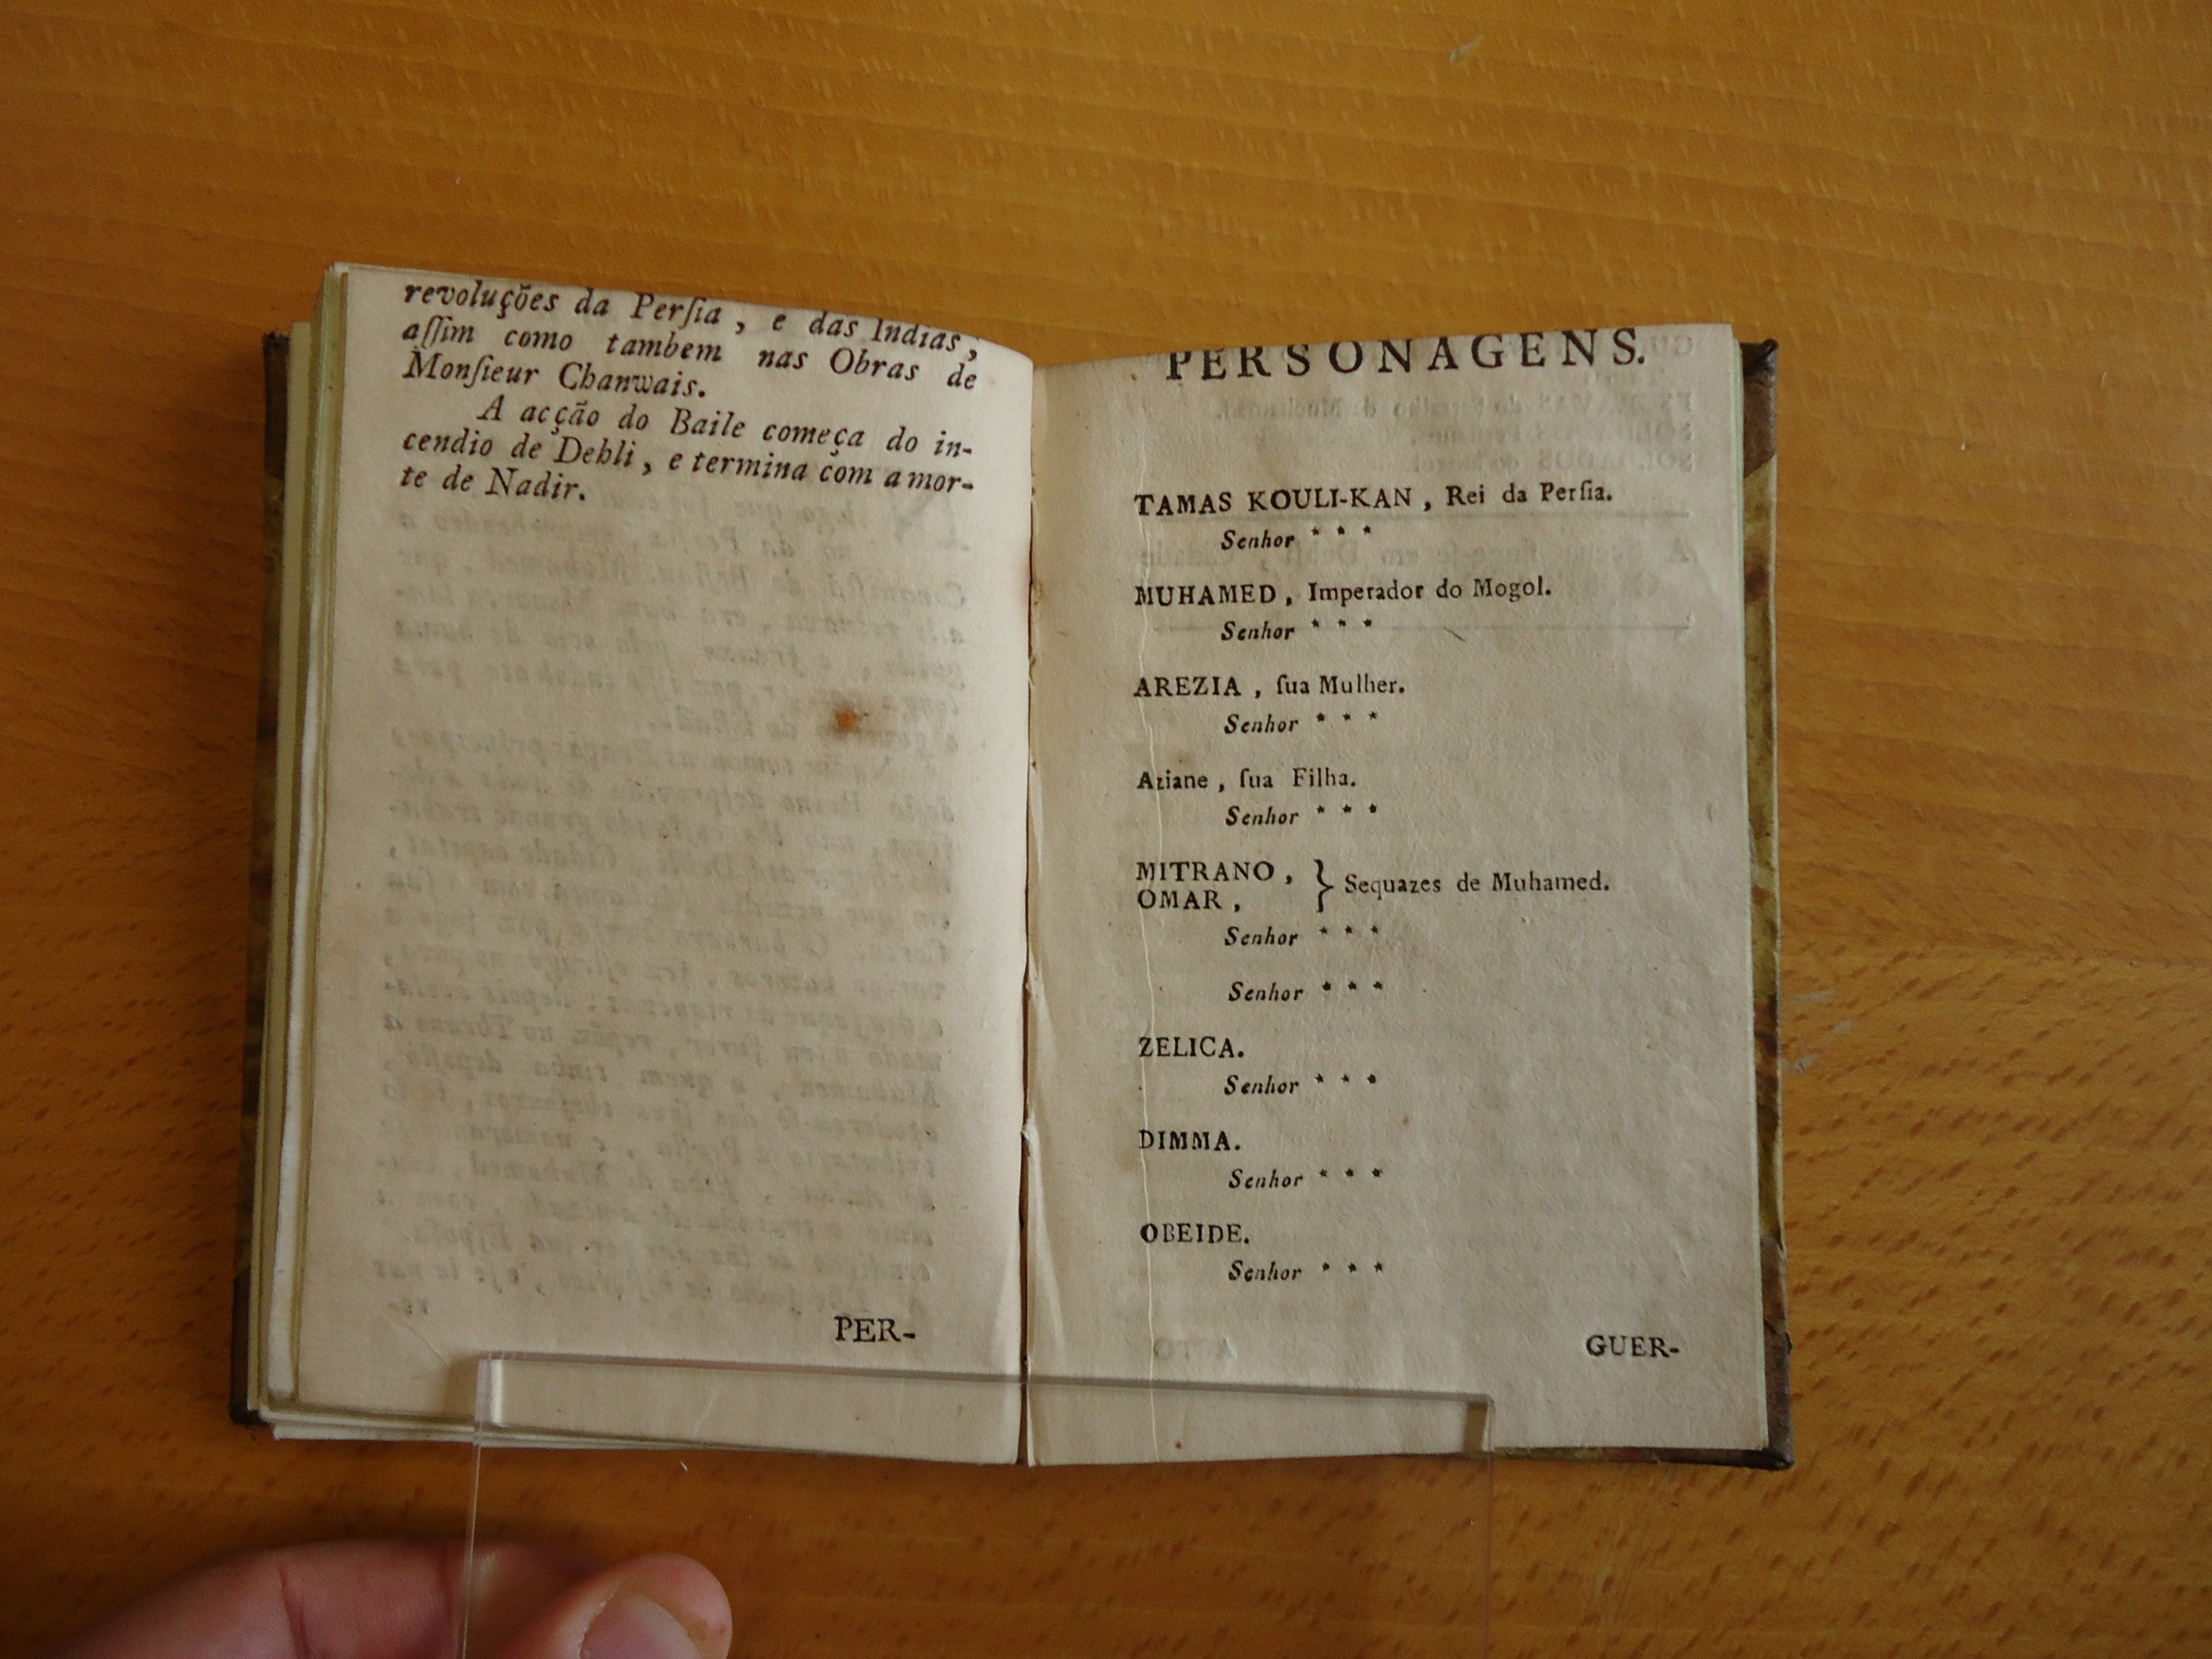 revoluções da Perſia, e das Indias,
aſſim como tambem nas Obras de
Monſieur Chanwais.
A acção do Baile começa do in-
cendio de Dehli, e termina com a mor-
te de Nadir.
PER-
PERSONAGENS.
TAMAS KOULI-KAN, Rei da Perſia.
Senhor * * *
MUHAMED, Imperador do Mogol.
Senhor * * *
AREZIA, ſua Mulher.
Senhor * * *
Aziane, ſua Filha.
Senhor * * *
MITRANO,
OMAR, } Sequazes de Muhamed.
Senhor * * *
Senhor * * *
ZELICA.
Senhor * * *
DIMMA.
Senhor * * *
OBEIDE.
Senhor * * *
GUER-